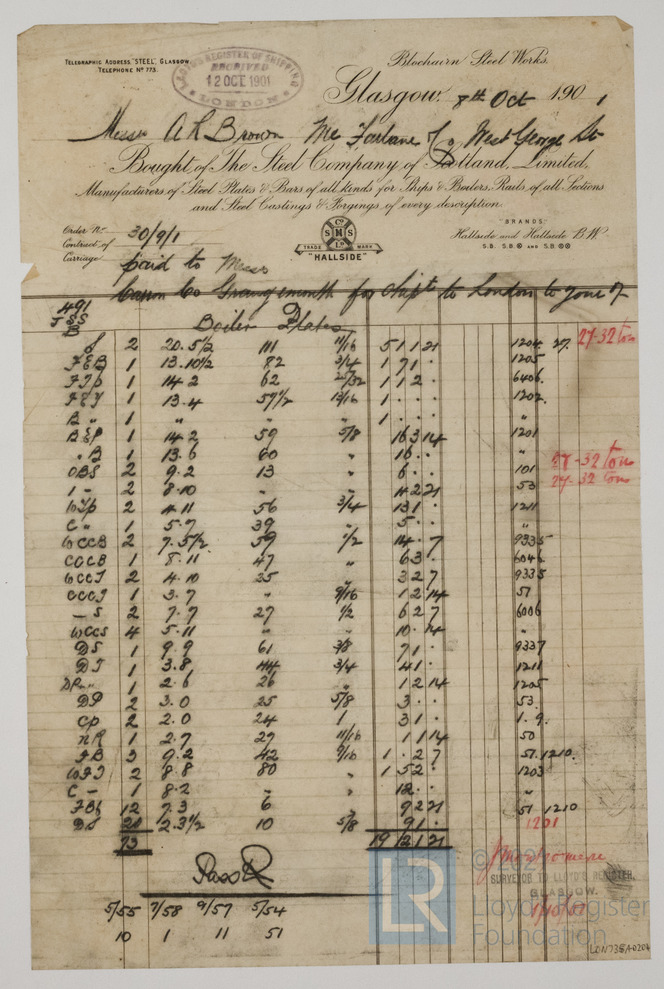 TELEGRAPHIC ADDRESS "STEEL", GLASGOW.
TELEPHONE Nº 773.
LLOYD'S REGISTER OF SHIPPING
RECEIVED
12 OCT 1901
LONDON
Blochairn Steel Works.
Glasgow. 8th Oct 1901
Messrs A R Brown McFarlane & Co West George St
Bought of The Steel Company of Scotland, Limited,
Manufacturers of Steel Plates & Bars of all kinds for Ships & Boilers, Rails of all Sections
and Steel Castings & Forgings of every description.
Order No 30/9/1
Contract of
Carriage paid to Messrs
TRADE MARK
"HALLSIDE"
"BRANDS"
Hallside and Hallside B.W.
Carron Co Grangemouth for Shipt to London to
491
B
Boiler Plates
2 20.5½ 111 11/16 5 1 1 21 1204 27 27-32 tons
FEB 1 13.10½ 82 3/4 1 7 1 · 1205
1 14.2 62 25/32 1 1 2 · 6406
1 13.4 57½ 13/16 1 · · · 1202
B " 1 " " " 1 · · · "
1 14.2 59 5/8 16 3 14 1201
" B 1 13.6 60 " 16 · · " 27-32 tons
OBS 2 9.2 13 " 6 · · 101 27-32 tons
2 8.10 " " 4 2 21 53
2 4.11 56 3/4 13 1 · 1211
C " 1 5.7 39 " 5 · · "
WCCB 2 7.5½ 59 1/2 14 · 7 9335
COCB 1 8.11 47 " 6 3 · 6046
WCCT 2 4.10 25 " 3 2 7 9335
1 3.7 " 9/16 1 2 14 51
- S 2 7.7 27 1/2 6 2 7 6006
WCCS 4 5.11 " " 10 · 14 "
DS 1 9.9 61 3/8 7 1 · 9337
DT 1 3.8 44 3/4 4 1 · 1211
1 2.6 26 " 1 2 14 1205
DP 2 3.0 25 5/8 3 · · 53
CP 2 2.0 24 1 3 1 · 1.9.
NR 1 2.7 29 11/16 1 1 14 50
FB 3 9.2 42 9/16 1 · 2 7 51.1210.
2 8.8 80 " 1 5 2 · 1203
C - 1 8.2 " " 12 · · "
12 7.3 6 9 2 21 51 1210
DS 20 2.3½ 10 5/8 9 1 · 1201
73 19 12 1 21
Pass
5/55 7/58 9/57 5/54
10 1 11 51
SURVEYOR TO LLOYD'S REGISTER,
GLASGOW.
LR
Lloyd's Register
Foundation
LON735A-0204